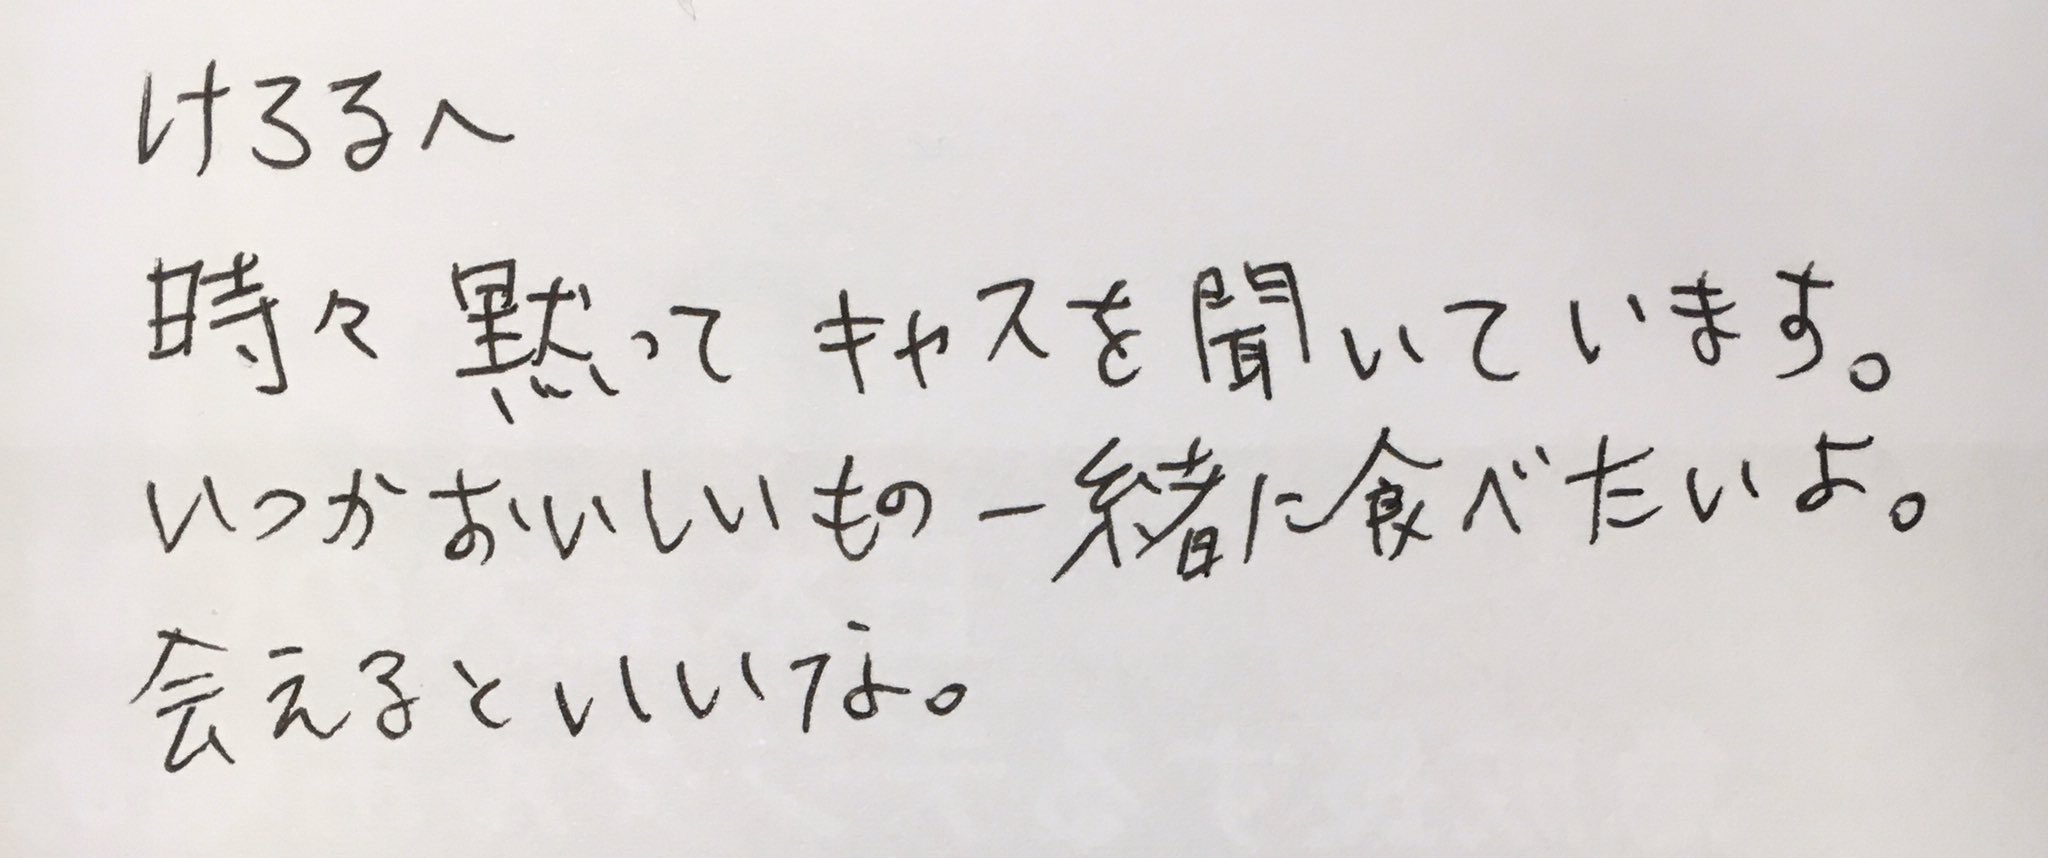 けろるへ
時々黙ってキャスを聞いています。
いつかおいしいもの一緒に食べたいよ。
会えるといいな。